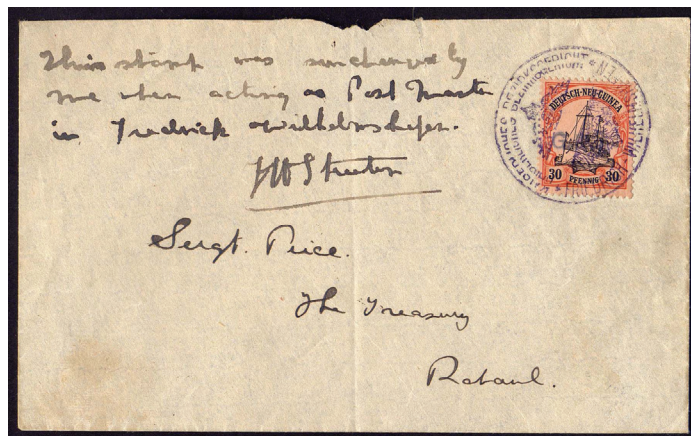 This stamp was surcharged by
me when acting as Post Master
in Fredrick Wilhelmshafen.
Sergt. Price.
The Treasury
Rabaul.
KAISERLICHES BEZIRKSGERICHT
DEUTSCH-NEU-GUINEA
30 PFENNIG 30